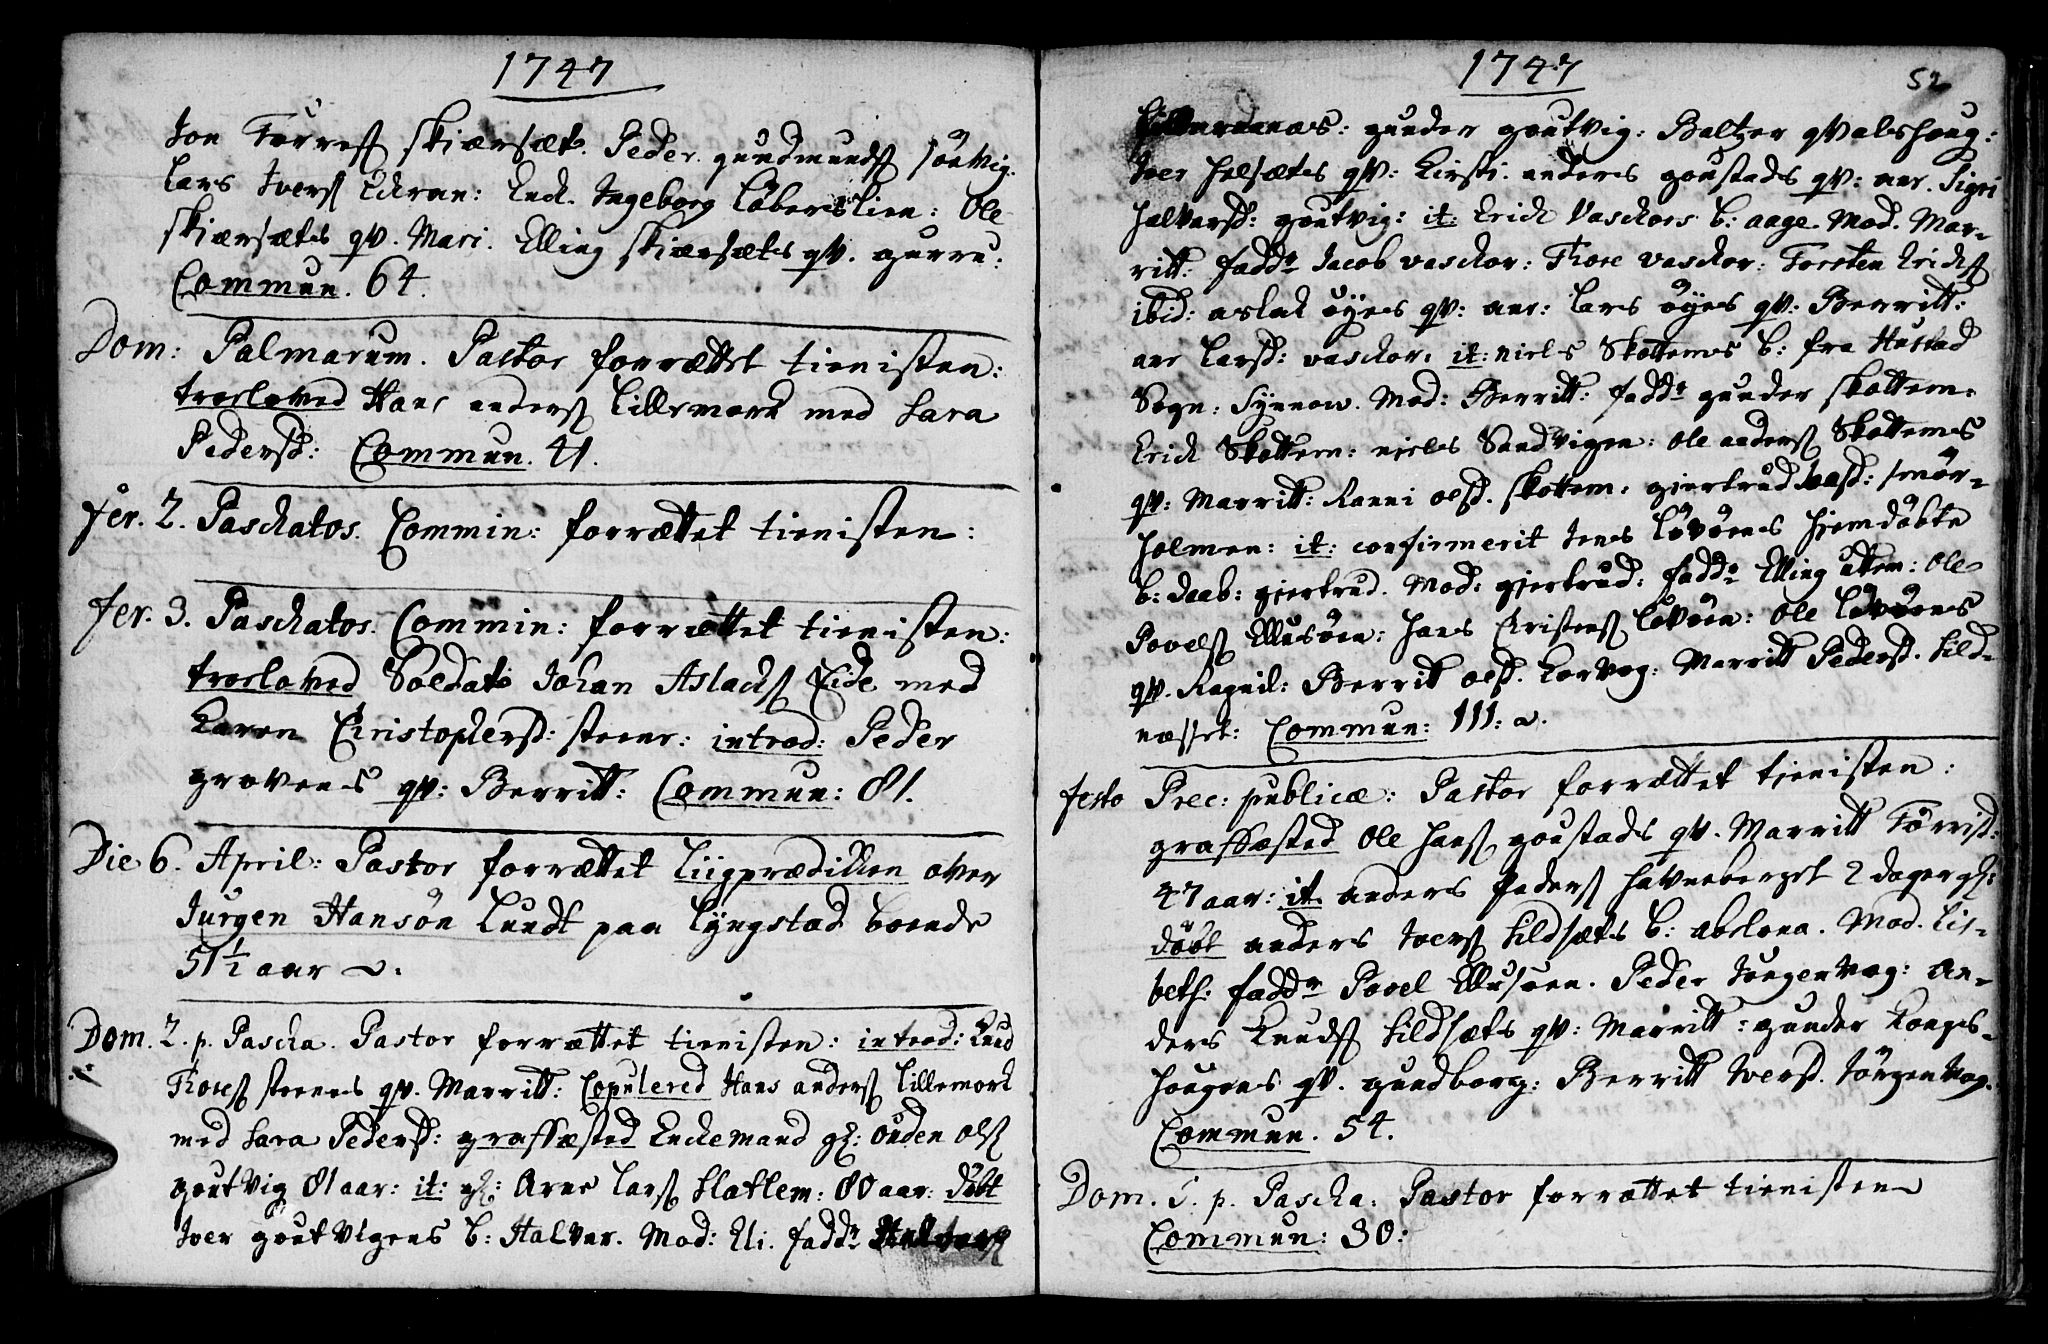 1747
Jon Torress skiærsæt. Peder gundmunds sörvig.
Lars Ivers Eckran: Enck. Ingeborg Löberslien: Ole
skiærsæts qv. Mari. Elling skiærsæts qv. gurru:
Commun. 64.
Dom: Palmarum. Pastor forrættet tienisten:
troeloved Hans anders Lillemork med Sara
Pedersd: Commun. 41.
fer. 2. Paschatos. Commin: forrættet tienisten:
fer. 3. Paschatos. Commin: forrættet tienisten:
troeloved Soldat Johan Aslachs Eide med
Karen Christophersd: steene: introd: Peder
grovens qv: Berritt: Commun: 81.
Die 6. April: Pastor forrættet Liigprædikken over
Jurgen Hansön Lundt paa Lyngstad boende
51½ aar
Dom. 2. p. Pascha. Pastor forrættet tienisten: introd: Knud
Thores steenes qv. Marritt: Copulered Hans anders Lillemork
med Sara Pedersd: graffæsted Enckemand gl: Ouden ols
goutvig 81 aar: it: gl: Arne Lars Slatlem: 80 aar: döbt
Iver goutvigens b: Halvor. Mod: Eli. fadd:
1747
52
gunder goutvig: Baltzer qvalshoug:
Iver Helsæts qv: Kirsti. anders goustads qv: ane. Sigri
Halvorsd: goutvig: it: Erich Vaschors b: aage. Mod. Mar-
ritt: fadd: Jacob vaschor: Thore vaschor: Torsten Erichs
ibid: aslak öyes qv: ane: Lars öyes qv: Berritt:
ane Larsd: vaschor: it: niels Skottems b: fra Hustad
Sogn: Synnow. Mod: Berritt: fadd: gunder skottem:
Erich Skottem: niels Sandvigen: ole anders Skottems
qv: Marritt: Ranni olsd. skottem: giertrud smör-
holmen: it: confirmerit Jens Lövöens hiemdöbte
b: daab: giertrud. Mod: giertrud: fadd: Elling uttem: Ole
Povels Ellusöen: Hans Christens Lövöen: Ole Lövöens
qv. Ragnil: Berritt olsd. Korvog: Marritt Pedersd. Sild-
næsset: Commun: 111:
festo Prec: publicæ: Pastor forrættet tienisten:
graffæsted Ole Hans goustads qv. Marritt Torrisd:
47 aar: it. anders Peders Havneberget 2 dager gl:
döbt anders Ivers Sildsæts b: abelona. Mod. Lis-
beth: fadd: Povel Ellusöen. Peder Jörgenvog: An-
ders Knuds Sildsæts qv: Marritt: gunder Kongs-
hougens qv. gundborg: Berritt Iversd. Jörgenvog.
Commun. 54.
Dom. 3. p. Pascha: Pastor forrættet tienisten
Commun: 30: